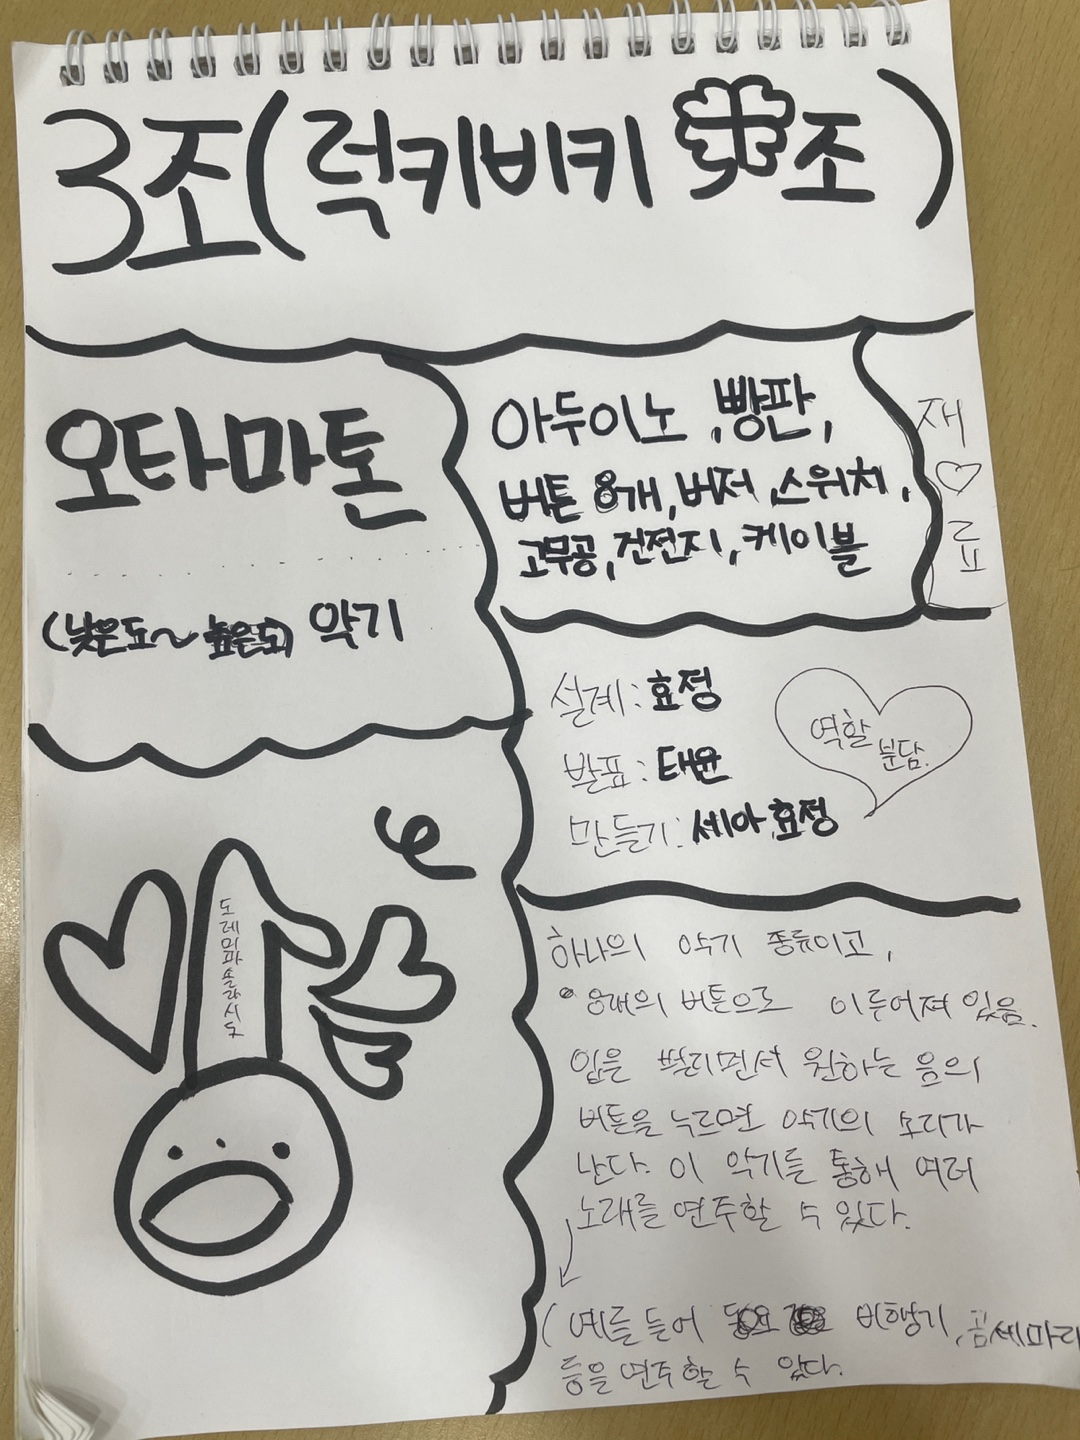 3조(럭키비키 조)
오타마톤
(낮은도~높은도) 악기
아두이노, 빵판,
버튼 8개, 버저, 스위치,
고무공, 건전지, 케이블
재
료
설계: 효정
발표: 태윤
만들기: 세아, 효정
역할
분담.
도레미파솔라시도
하나의 악기 종류이고,
8개의 버튼으로 이루어져 있음.
입을 벌리면서 원하는 음의
버튼을 누르면 악기의 소리가
난다. 이 악기를 통해 여러
노래를 연주할 수 있다.
(예를 들어 비행기, 곰세마리
등을 연주할 수 있다.